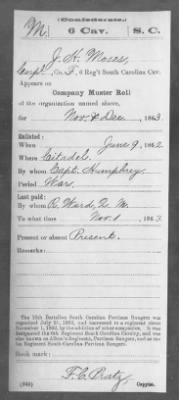 (Confederate.)
M 6 Cav. S. C.
J. H. Moses,
Corpl, Co. F, 6 Reg't South Carolina Cav.
Appears on
Company Muster Roll
of the organization named above,
for Nov. & Dec, 1863
Enlisted:
When June 9, 1862
Where Citadel.
By whom Capt. Humphrey.
Period War.
Last paid:
By whom R. Ward, Q. M.
To what time Nov. 1 1863
Present or absent Present.
Remarks:
The 16th Battalion South Carolina Partisan Rangers was
organized July 21, 1862, and increased to a regiment
November 1, 1862, by the addition of other companies. It was
designated the 6th Regiment South Carolina Cavalry, and was
also known as Aiken's Regiment, Partisan Rangers, and as the
1st Regiment South Carolina Partisan Rangers.
Book mark:
Copyist.